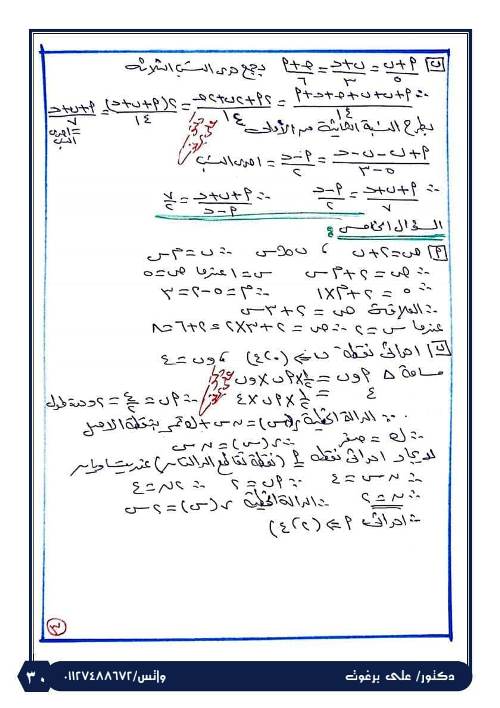 ب (أ+ب)/٥ = (ب+جـ)/٣ = (جـ+أ)/٦ بجمع حدى النسب الثلاثة
∴ (أ+ب+ب+جـ+جـ+أ)/١٤ = (٢أ+٢ب+٢جـ)/١٤ = ٢(أ+ب+جـ)/١٤ = (أ+ب+جـ)/٧ = احدى النسب
بطرح النسبة الثانية من الأولى
(أ+ب-ب-جـ)/(٥-٣) = (أ-جـ)/٢ = احدى النسب
∴ (أ+ب+جـ)/٧ = (أ-جـ)/٢ ∴ (أ+ب+جـ)/(أ-جـ) = ٧/٢
السؤال الخامس :
أ ص=٢+ب ، ب∝س ∴ ب=م س
∴ ص=٢+م س س=١ عندما ص=٥
∴ ٥=٢+م×١ ∴ م=٥-٢=٣
∴ العلاقة ص=٢+٣س
عندما س=٢ ∴ ص=٢+٣×٢=٢+٦=٨
ب احداثى نقطة ب ⇐ (٠،٤) ، ب و=٤
مساحة △ أ ب و = ١/٢ × أب × و ب
٤ = ١/٢ × أب × ٤ ∴ أب = ٤/٢ = ٢ وحدة طول
∵ الدالة الخطية ر(س)=ن س+ك تمر بنقطة الاصل
∴ ك=صفر ∴ ر(س)=ن س
لايجاد احداثى نقطة أ (نقطة تقاطع الدالتان) عندها يتساويان
∴ ن س=٤ ∵ أب=٢ ∴ ٢ن=٤
∴ ن=٢ ∴ الدالة الخطية ر(س)=٢س
∴ احداثى أ ⇐ (٢،٤)
٣
دكتور/ على برغوث
واتس/٠١١٢٧٤٨٨٦٧٢
٣٠